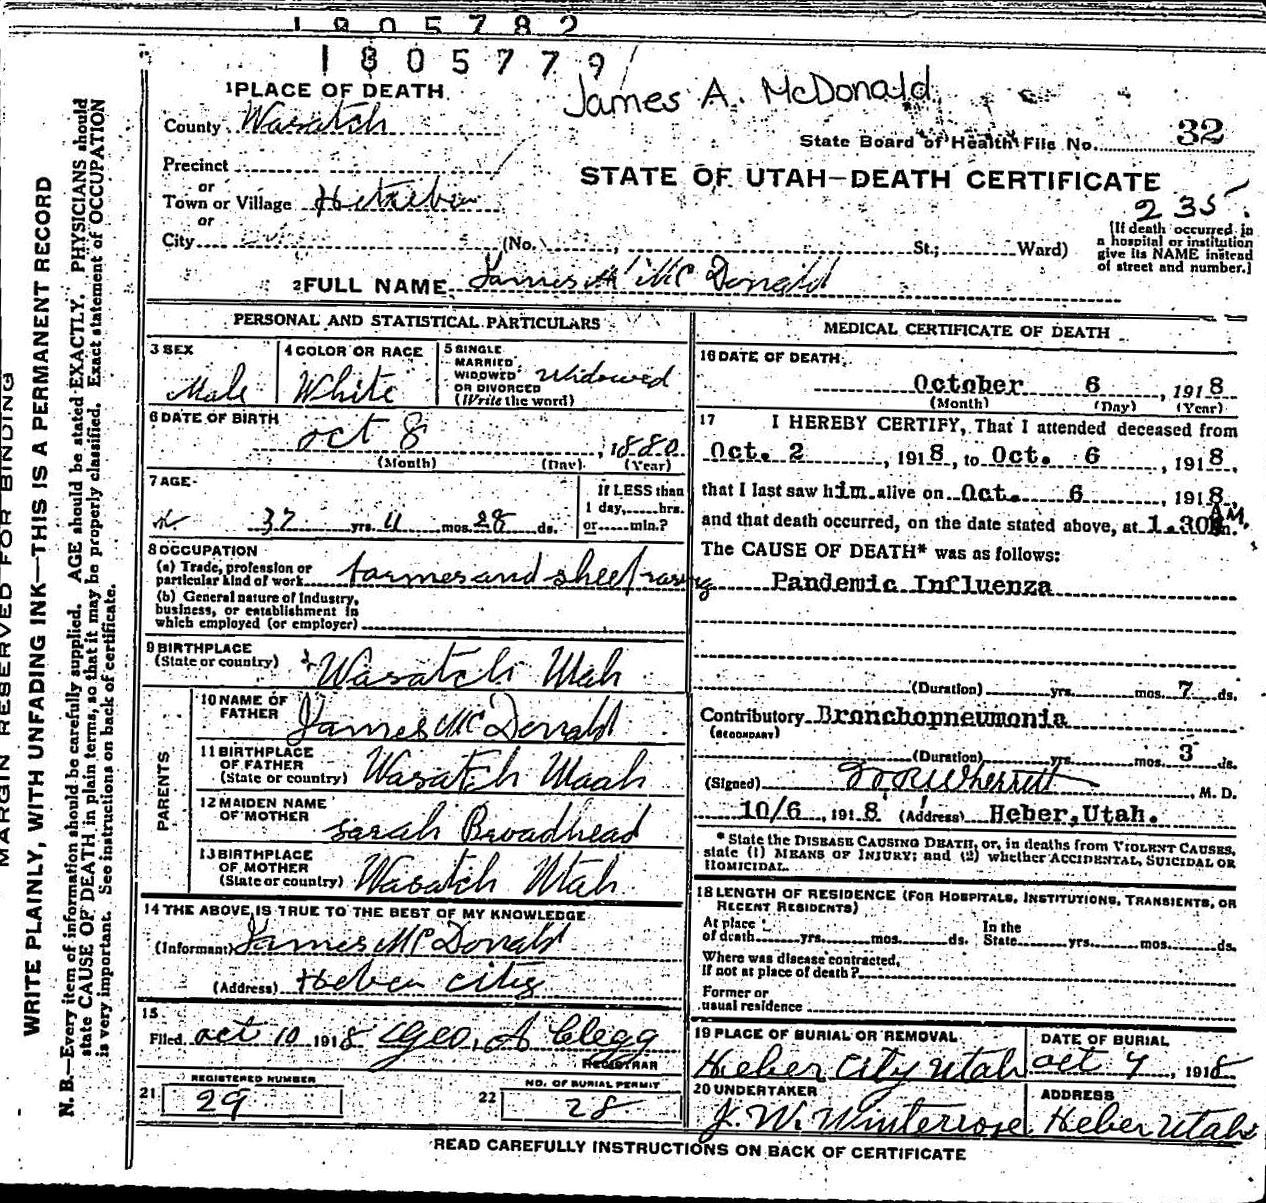 1805782
1805779
James A. McDonald
1 PLACE OF DEATH
County Wasatch
State Board of Health File No. 32
Precinct
or
Town or Village Heber
or
City (No. , St.; Ward)
STATE OF UTAH—DEATH CERTIFICATE
235
[If death occurred in
a hospital or institution
give its NAME instead
of street and number.]
2 FULL NAME James A McDonald
PERSONAL AND STATISTICAL PARTICULARS
3 SEX
Male
4 COLOR OR RACE
White
5 SINGLE
MARRIED
WIDOWED
OR DIVORCED
(Write the word)
Widowed
6 DATE OF BIRTH
Oct 8, 1880
(Month) (Day) (Year)
7 AGE
37 yrs. 11 mos. 28 ds.
If LESS than
1 day, hrs.
or min.?
8 OCCUPATION
(a) Trade, profession or
particular kind of work farmer and sheep rasing
(b) General nature of Industry,
business, or establishment in
which employed (or employer)
9 BIRTHPLACE
(State or country) Wasatch Utah
PARENTS
10 NAME OF
FATHER James McDonald
11 BIRTHPLACE
OF FATHER
(State or country) Wasatch Utah
12 MAIDEN NAME
OF MOTHER Sarah Broadhead
13 BIRTHPLACE
OF MOTHER
(State or country) Wasatch Utah
14 THE ABOVE IS TRUE TO THE BEST OF MY KNOWLEDGE
(Informant) James McDonald
(Address) Heber City
15
Filed Oct 10 1918 Geo. A Clegg
REGISTRAR
REGISTERED NUMBER
21 29
NO. OF BURIAL PERMIT
22 28
MEDICAL CERTIFICATE OF DEATH
16 DATE OF DEATH
October 6, 1918
(Month) (Day) (Year)
17 I HEREBY CERTIFY, That I attended deceased from
Oct. 2, 1918, to Oct. 6, 1918,
that I last saw him alive on Oct. 6, 1918,
and that death occurred, on the date stated above, at 1.30 A.M.
The CAUSE OF DEATH* was as follows:
Pandemic Influenza
(Duration) yrs. mos. 7 ds.
Contributory Bronchopneumonia
(SECONDARY)
(Duration) yrs. mos. 3 ds.
(Signed) Wherritt, M. D.
10/6, 1918 (Address) Heber, Utah.
* State the DISEASE CAUSING DEATH, or, in deaths from VIOLENT CAUSES,
state (1) MEANS OF INJURY; and (2) whether ACCIDENTAL, SUICIDAL OR
HOMICIDAL.
18 LENGTH OF RESIDENCE (FOR HOSPITALS, INSTITUTIONS, TRANSIENTS, OR
RECENT RESIDENTS)
At place
of death yrs. mos. ds.
In the
State yrs. mos. ds.
Where was disease contracted,
If not at place of death?
Former or
usual residence
19 PLACE OF BURIAL OR REMOVAL
Heber City Utah
DATE OF BURIAL
Oct 7, 1918
20 UNDERTAKER
J. W. Winterrose
ADDRESS
Heber Utah
READ CAREFULLY INSTRUCTIONS ON BACK OF CERTIFICATE
MARGIN RESERVED FOR BINDING
WRITE PLAINLY, WITH UNFADING INK—THIS IS A PERMANENT RECORD
N. B.—Every item of information should be carefully supplied. AGE should be stated EXACTLY. PHYSICIANS should
state CAUSE OF DEATH in plain terms, so that it may be properly classified. Exact statement of OCCUPATION
is very important. See instructions on back of certificate.